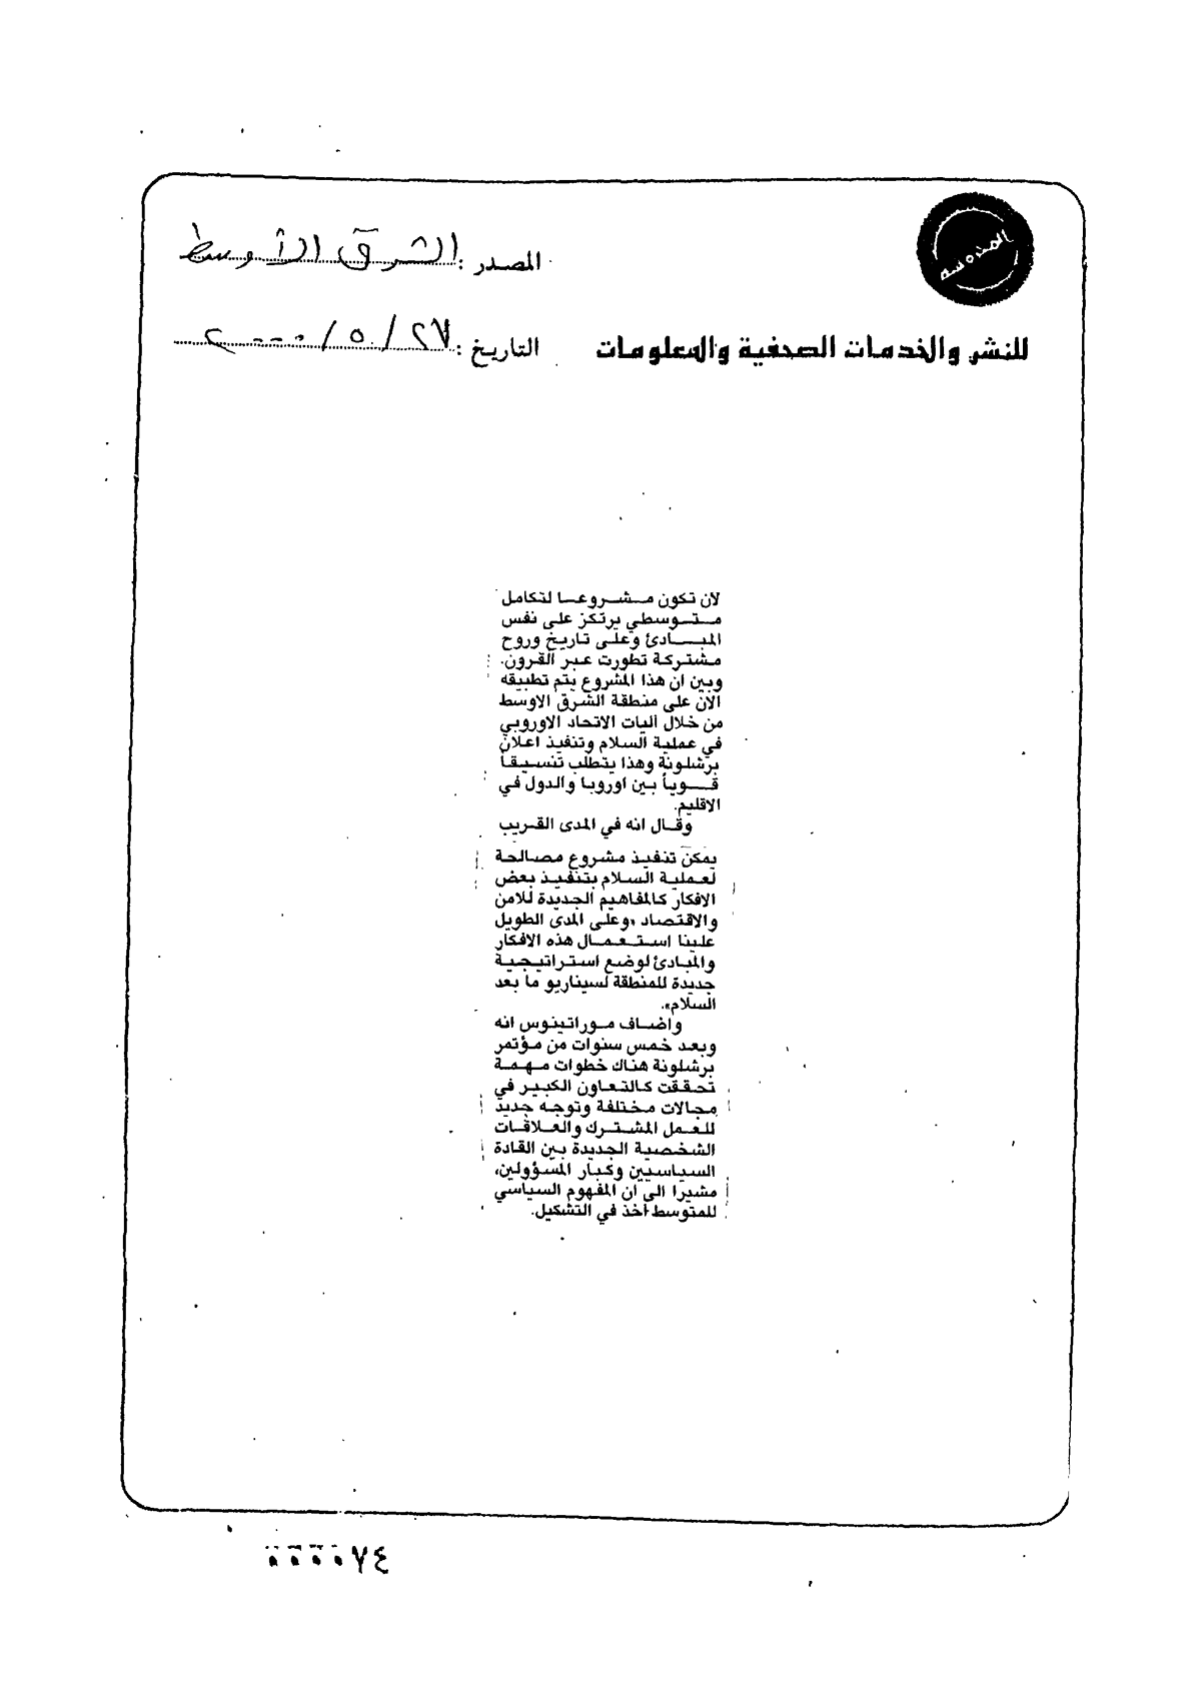 المصدر : الشرق الأوسط
للنشر والخدمات الصحفية والمعلومات
التاريخ : ٢٧ / ٥ / ٢٠٠٠
لان تكون مشروعا لتكامل
متوسطي يرتكز على نفس
المبادئ وعلى تاريخ وروح
مشتركة تطورت عبر القرون.
وبين ان هذا المشروع يتم تطبيقه
الان على منطقة الشرق الاوسط
من خلال اليات الاتحاد الاوروبي
في عملية السلام وتنفيذ اعلان
برشلونة وهذا يتطلب تنسيقاً
قوياً بين اوروبا والدول في
الاقليم.
وقال انه في المدى القريب
يمكن تنفيذ مشروع مصالحة
لعملية السلام بتنفيذ بعض
الافكار كالمفاهيم الجديدة للامن
والاقتصاد «وعلى المدى الطويل
علينا استعمال هذه الافكار
والمبادئ لوضع استراتيجية
جديدة للمنطقة لسيناريو ما بعد
السلام».
واضاف موراتينوس انه
وبعد خمس سنوات من مؤتمر
برشلونة هناك خطوات مهمة
تحققت كالتعاون الكبير في
مجالات مختلفة وتوجه جديد
للعمل المشترك والعلاقات
الشخصية الجديدة بين القادة
السياسيين وكبار المسؤولين،
مشيرا الى ان المفهوم السياسي
للمتوسط اخذ في التشكيل.